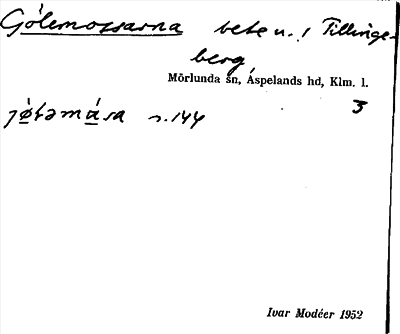 Gölemossarna bete u. / Tillinge-
berg
Mörlunda sn, Aspelands hd, Klm. l.
3
jø̀ləmása s. 144
Ivar Modéer 1952